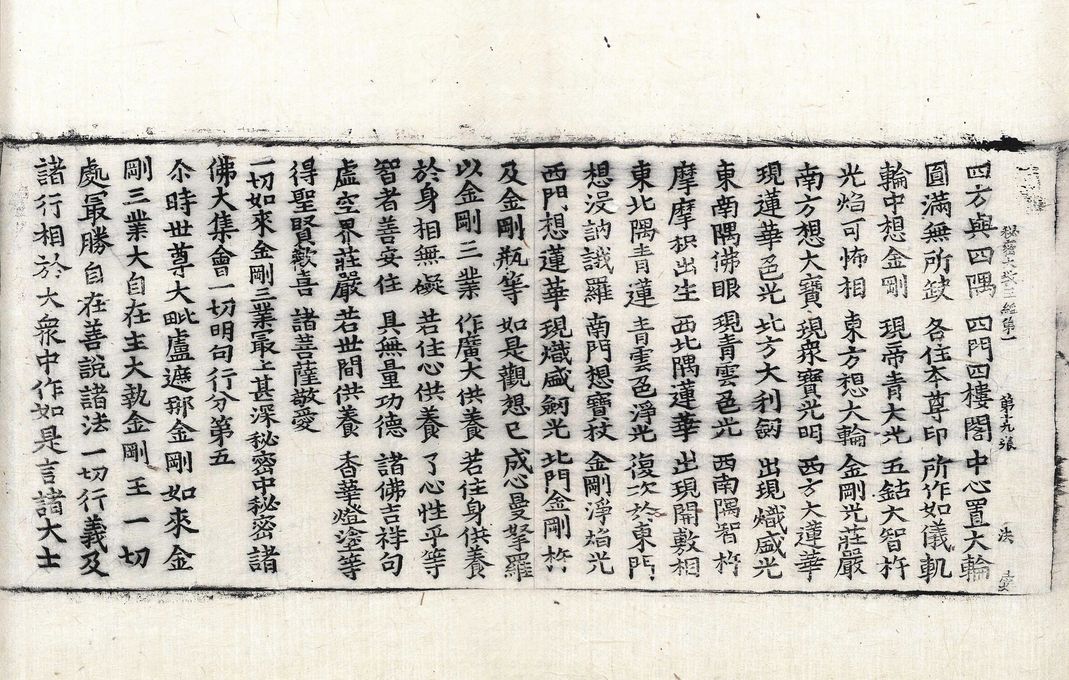 秘密大教王經第一 第十九張 法
四方與四隅 四門四樓閣 中心置大輪
圓滿無所缺 各住本尊印 所作如儀軌
輪中想金剛 現帝青大光 五鈷大智杵
光焰可怖相 東方想大輪 金剛光莊嚴
南方想大寶 現衆寶光明 西方大蓮華
現蓮華色光 北方大利劒 出現熾盛光
東南隅佛眼 現青雲色光 西南隅智杵
摩摩枳出生 西北隅蓮華 出現開敷相
東北隅青蓮 青雲色淨光 復次於東門
想沒訥誐羅 南門想寶杖 金剛淨焰光
西門想蓮華 現熾盛劒光 北門金剛杵
及金剛瓶等 如是觀想已 成心曼拏羅
以金剛三業 作廣大供養 若住身供養
於身相無礙 若住心供養 了心性平等
智者善安住 具無量功德 諸佛吉祥句
虛空界莊嚴 若世間供養 香華燈塗等
得聖賢歡喜 諸菩薩敬愛
一切如來金剛三業最上甚深秘密中秘密諸
佛大集會一切明句行分第五
尒時世尊大毗盧遮那金剛如來金
剛三業大自在主大執金剛王一切
處最勝自在善說諸法一切行義及
諸行相於大衆中作如是言諸大士